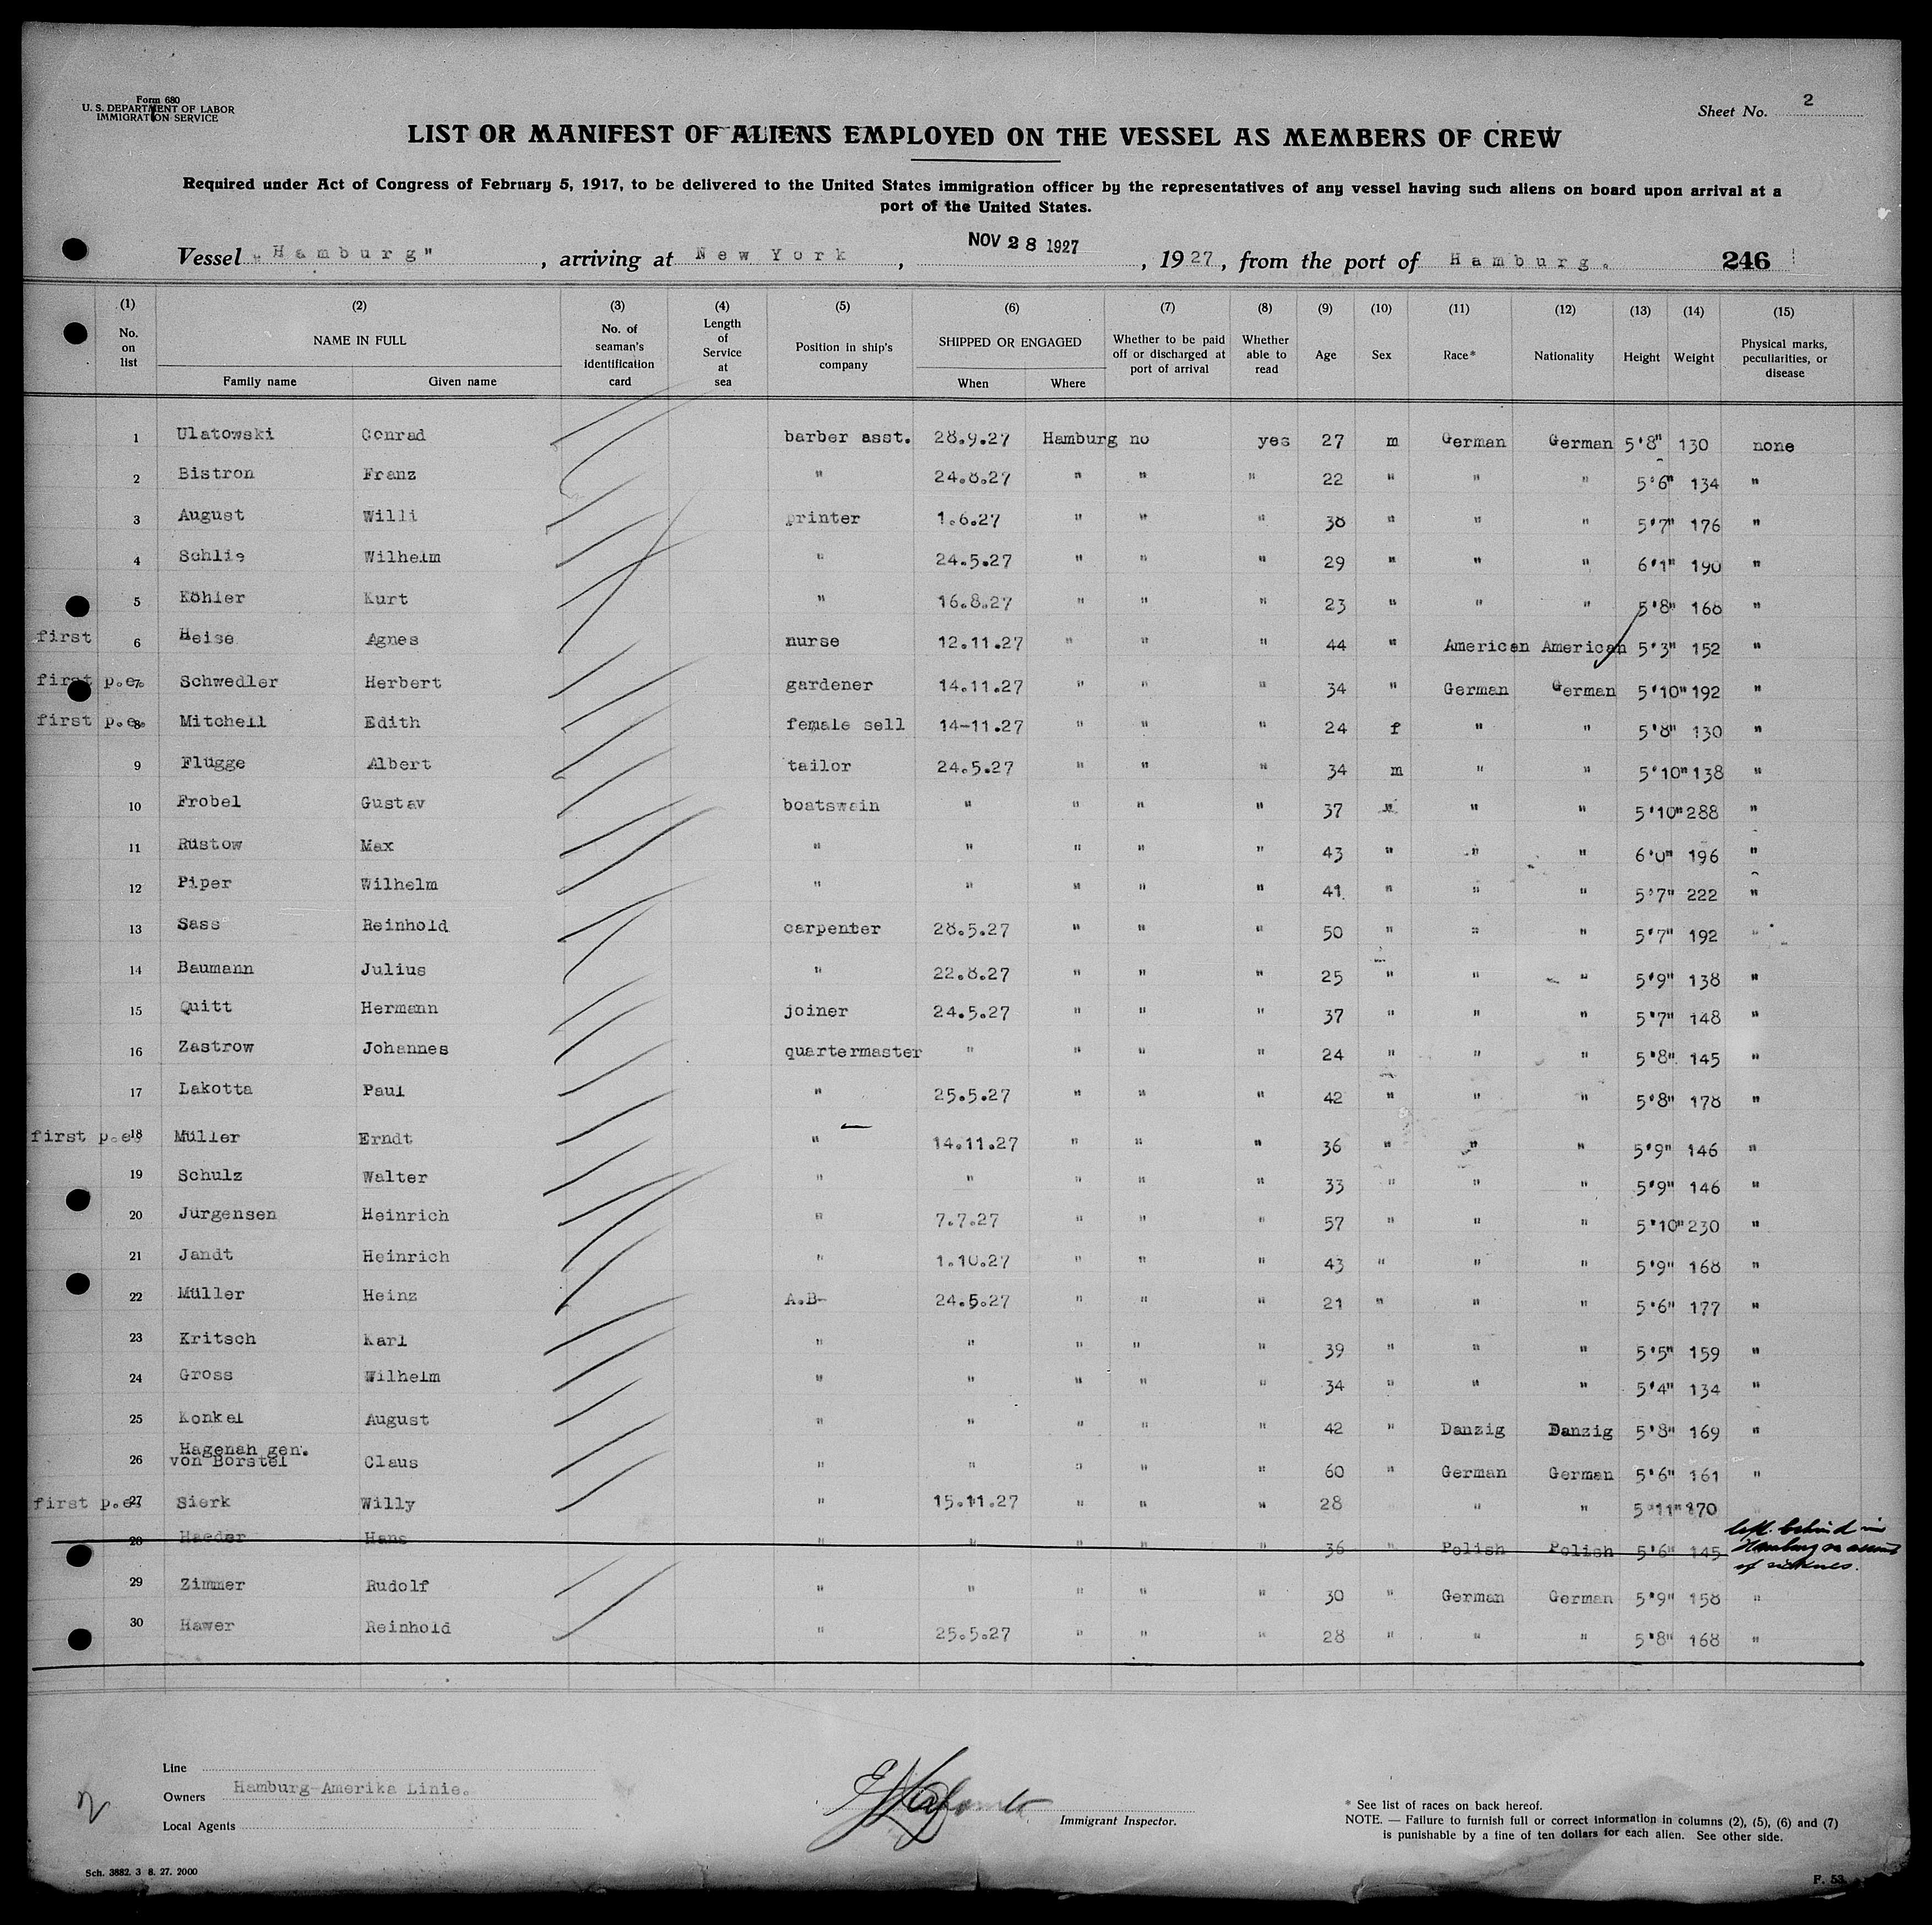 Form 680
U. S. DEPARTMENT OF LABOR
IMMIGRATION SERVICE
Sheet No. 2
LIST OR MANIFEST OF ALIENS EMPLOYED ON THE VESSEL AS MEMBERS OF CREW
Required under Act of Congress of February 5, 1917, to be delivered to the United States immigration officer by the representatives of any vessel having such aliens on board upon arrival at a
port of the United States.
Vessel „Hamburg", arriving at New York, NOV 28 1927, 1927, from the port of Hamburg. 246
(1) (2) (3) (4) (5) (6) (7) (8) (9) (10) (11) (12) (13) (14) (15)
No. on list NAME IN FULL Family name Given name No. of seaman's identification card Length of Service at sea Position in ship's company SHIPPED OR ENGAGED When Where Whether to be paid off or discharged at port of arrival Whether able to read Age Sex Race* Nationality Height Weight Physical marks, peculiarities, or disease
1 Ulatowski Conrad barber asst. 28.9.27 Hamburg no yes 27 m German German 5'8" 130 none
2 Bistron Franz " 24.8.27 " " " 22 " " " 5'6" 134 "
3 August Willi printer 1.6.27 " " " 38 " " " 5'7" 176 "
4 Schlie Wilhelm " 24.5.27 " " " 29 " " " 6'1" 190 "
5 Köhler Kurt " 16.8.27 " " " 23 " " " 5'8" 168 "
first 6 Heise Agnes nurse 12.11.27 " " " 44 " American American 5'3" 152 "
first p.e. 7 Schwedler Herbert gardener 14.11.27 " " " 34 " German German 5'10" 192 "
first p.e. 8 Mitchell Edith female sell 14-11.27 " " " 24 f " " 5'8" 130 "
9 Flügge Albert tailor 24.5.27 " " " 34 m " " 5'10" 138 "
10 Frobel Gustav boatswain " " " " 37 " " " 5'10" 288 "
11 Rüstow Max " " " " " 43 " " " 6'0" 196 "
12 Piper Wilhelm " " " " " 41 " " " 5'7" 222 "
13 Sass Reinhold carpenter 28.5.27 " " " 50 " " " 5'7" 192 "
14 Baumann Julius " 22.8.27 " " " 25 " " " 5'9" 138 "
15 Quitt Hermann joiner 24.5.27 " " " 37 " " " 5'7" 148 "
16 Zastrow Johannes quartermaster " " " " 24 " " " 5'8" 145 "
17 Lakotta Paul " 25.5.27 " " " 42 " " " 5'8" 178 "
first p.e. 18 Müller Erndt " 14.11.27 " " " 36 " " " 5'9" 146 "
19 Schulz Walter " " " " " 33 " " " 5'9" 146 "
20 Jürgensen Heinrich " 7.7.27 " " " 57 " " " 5'10" 230 "
21 Jandt Heinrich " 1.10.27 " " " 43 " " " 5'9" 168 "
22 Müller Heinz A.B- 24.5.27 " " " 21 " " " 5'6" 177 "
23 Kritsch Karl " " " " " 39 " " " 5'5" 159 "
24 Gross Wilhelm " " " " " 34 " " " 5'4" 134 "
25 Konkel August " " " " " 42 " Danzig Danzig 5'8" 169 "
26 Hagenah gen.
von Borstel Claus " " " " " 60 " German German 5'6" 161 "
first p.e. 27 Sierk Willy " 15.11.27 " " " 28 " " 5'11" 170
28 Haeder Hans " " " " " 36 " Polish Polish 5'6" 145 left behind in
Hamburg on account
of sickness.
29 Zimmer Rudolf " " " " " 30 " German German 5'9" 158 "
30 Hawer Reinhold " 25.5.27 " " " 28 " " " 5'8" 168 "
Line
Owners Hamburg-Amerika Linie.
Local Agents
Immigrant Inspector.
* See list of races on back hereof.
NOTE. — Failure to furnish full or correct information in columns (2), (5), (6) and (7)
is punishable by a fine of ten dollars for each alien. See other side.
Sch. 3882. 3 8. 27. 2000
F. 53